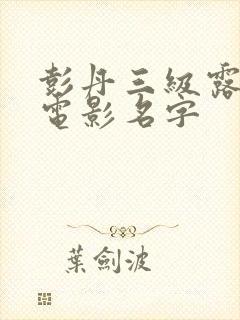 彭丹三級露
電影名字
葉劍波